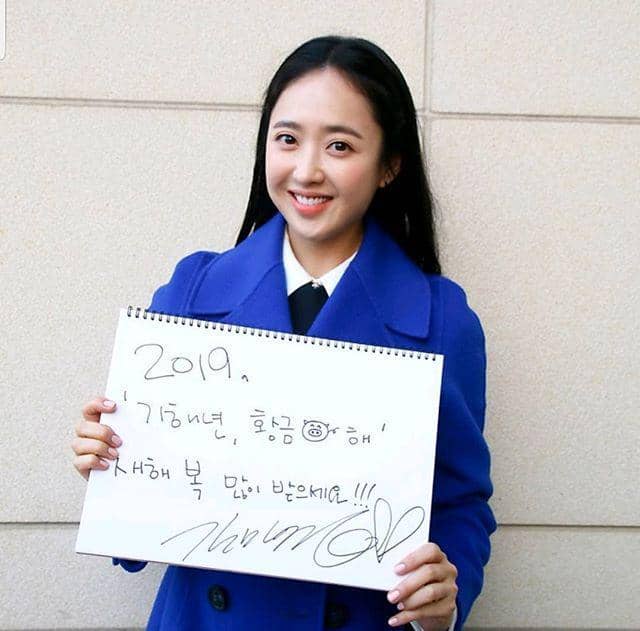 2019.
'기해년, 황금 해'
새해 복 많이 받으세요!!!